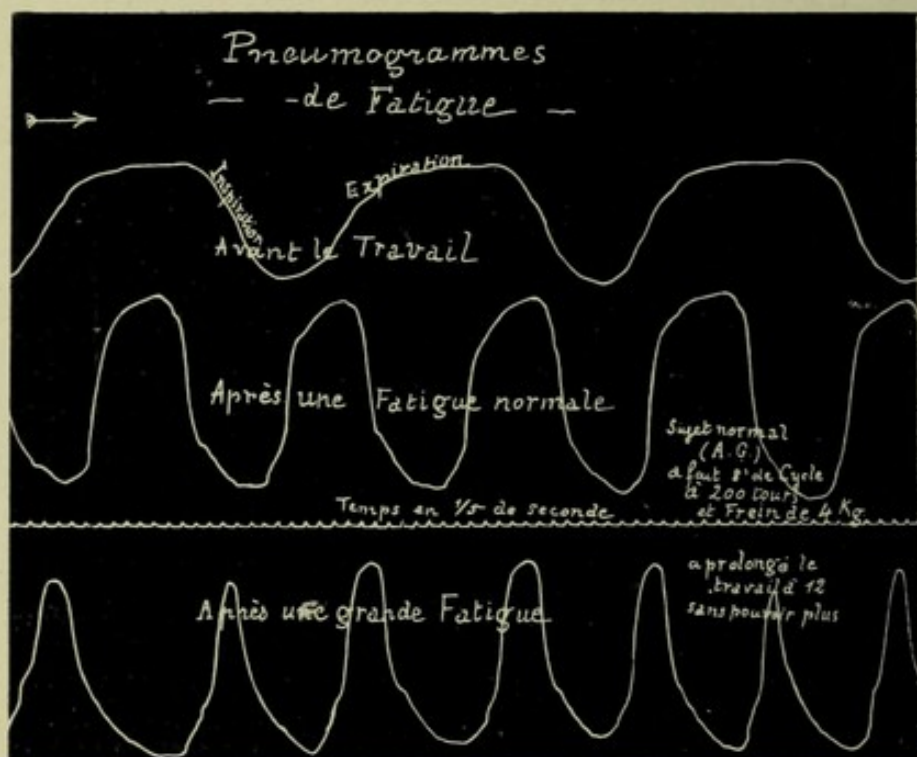 Pneumogrammes
— - de Fatigue —
Inspiration
Expiration
Avant le Travail
Après une Fatigue normale
Sujet normal
(A.G.)
a fait 8' de Cycle
à 200 tours
et Frein de 4 Kg
Temps en 1/5 de seconde
a prolongé le
travail à 12
sans pouvoir plus
Après une grande Fatigue